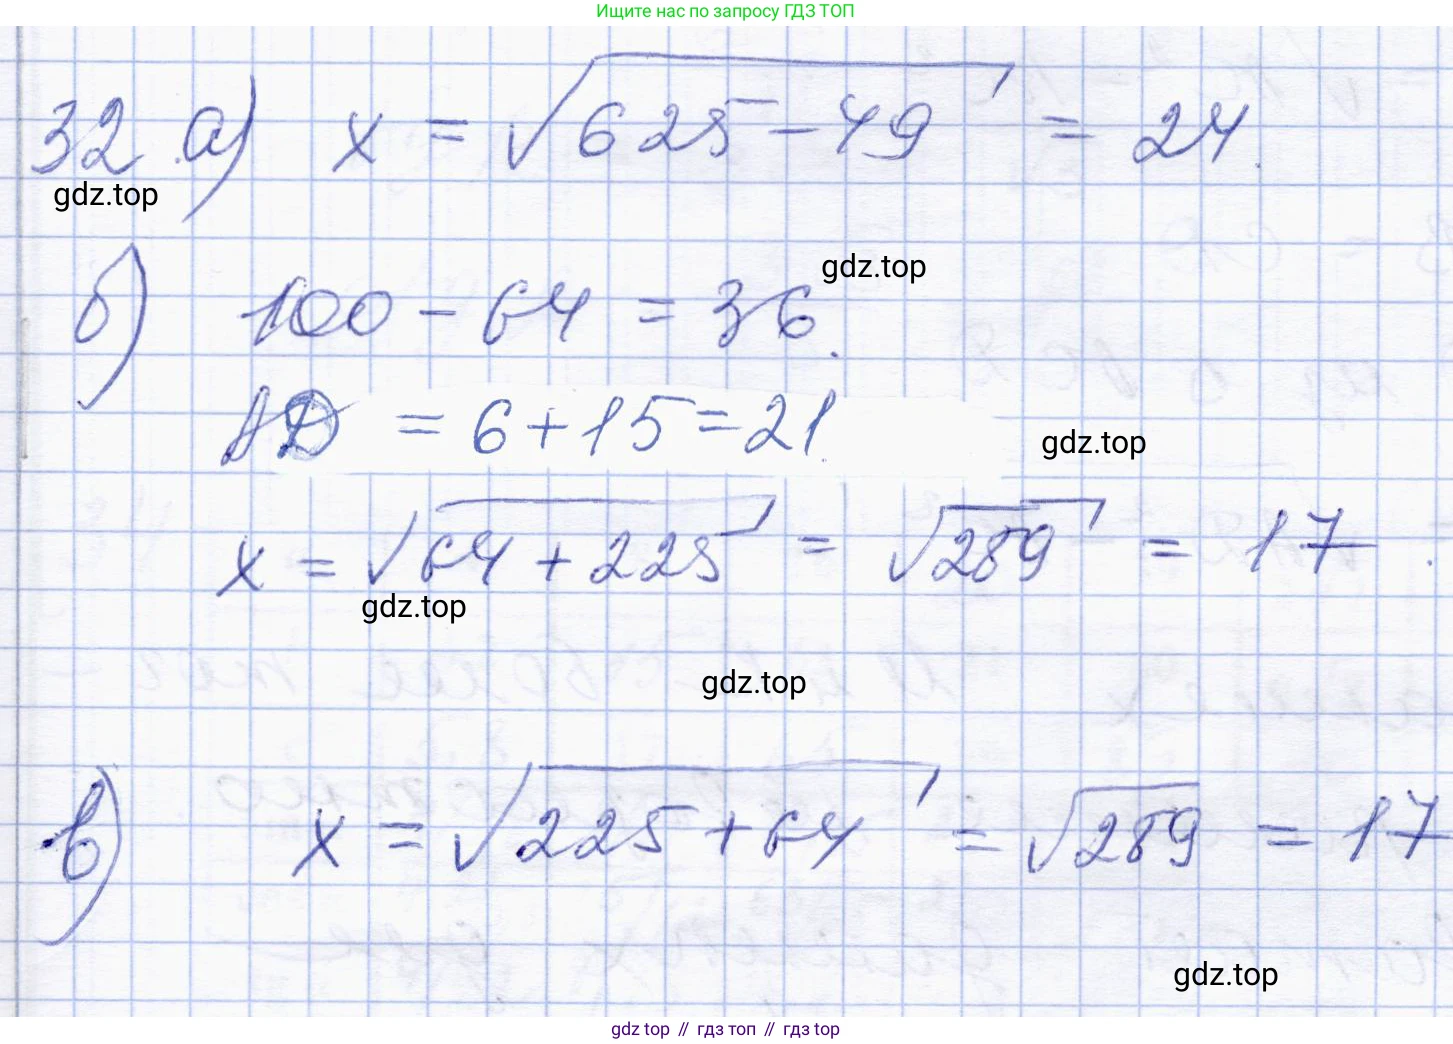 Ищите нас по запросу ГДЗ ТОП
32 а) x = √625 - 49 = 24.
gdz.top
gdz.top
б) 100 - 64 = 36.
AD = 6 + 15 = 21.
gdz.top
x = √64 + 225 = √289 = 17.
gdz.top
gdz.top
в) x = √225 + 64 = √289 = 17
gdz.top
gdz top // гдз топ // гдз top